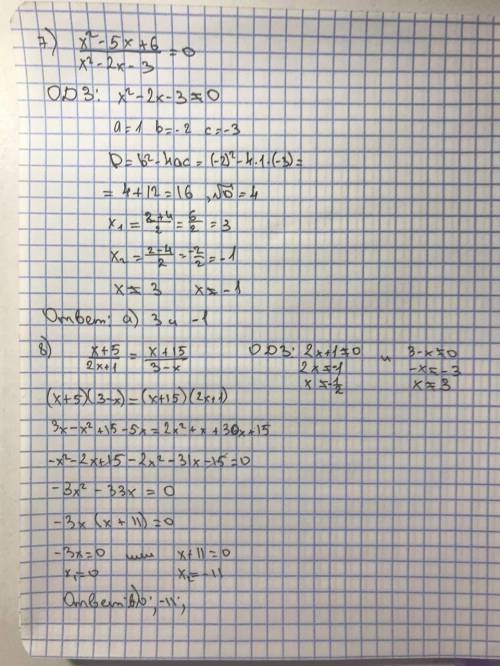 7) (x² - 5x + 6)/(x² - 2x - 3) = 0
ОДЗ: x² - 2x - 3 ≠ 0
a = 1 b = -2 c = -3
D = b² - 4ac = (-2)² - 4·1·(-3) =
= 4 + 12 = 16 , √D = 4
x₁ = (2+4)/2 = 6/2 = 3
x₂ = (2-4)/2 = -2/2 = -1
x ≠ 3 x ≠ -1
Ответ: а) 3 и -1
8) (x+5)/(2x+1) = (x+15)/(3-x) ОДЗ: 2x+1≠0 и 3-x≠0
2x≠-1 -x≠-3
x≠-1/2 x≠3
(x+5)(3-x) = (x+15)(2x+1)
3x - x² + 15 - 5x = 2x² + x + 30x + 15
-x² - 2x + 15 - 2x² - 31x - 15 = 0
-3x² - 33x = 0
-3x (x + 11) = 0
-3x = 0 или x + 11 = 0
x₁ = 0 x₂ = -11
Ответ: в) 0; -11;